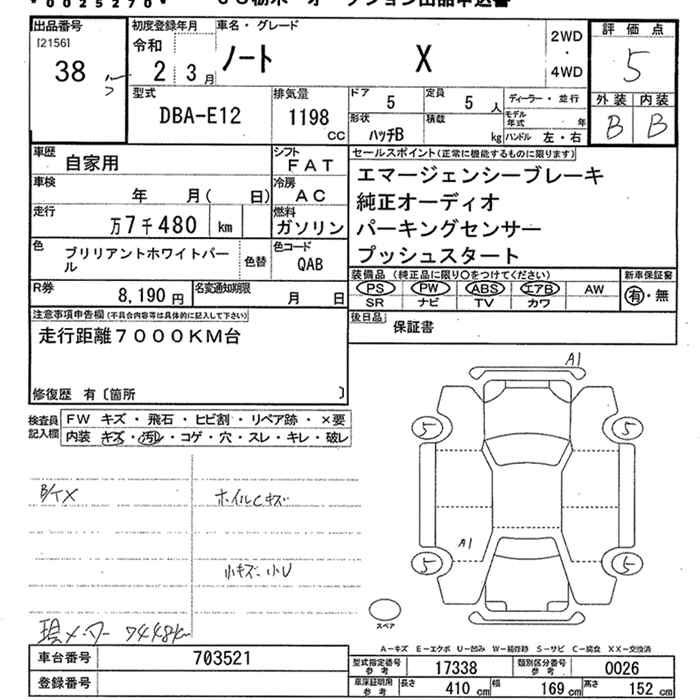 *0025270*
出品番号 [2156] 38
初度登録年月 令和 2 3月
車名・グレード ノート X
2WD ・ 4WD
評価点 5
外装 内装
B B
型式 DBA-E12
排気量 1198 CC
ドア 5
定員 5 人
ディーラー・並行
形状 ハッチB
積載 kg
モデル年式 年
ハンドル 左・右
車歴 自家用
シフト FAT
車検 年 月( 日)
冷房 AC
走行 万7千480 km
燃料 ガソリン
色 ブリリアントホワイトパール
色替
色コード QAB
R券 8,190 円
名変通知期限 月 日
セールスポイント(正常に機能するものに限ります)
エマージェンシーブレーキ
純正オーディオ
パーキングセンサー
プッシュスタート
装備品 (純正品に限り○をつけてください)
PS PW ABS エアB AW
SR ナビ TV カワ
新車保証書
有・無
後日品 保証書
注意事項申告欄(不具合内容等は具体的に記入して下さい)
走行距離7000KM台
修復歴 有〔箇所 〕
検査員記入欄
FW キズ・飛石・ヒビ割・リペア跡・×要
内装 キズ・汚れ・コゲ・穴・スレ・キレ・破レ
ホイルCキズ
小キズ 小U
現メーター 7448k
A1
5 5
A1
5 5
スペア
A-キズ E-エクボ U-凹み W-補修跡 S-サビ C-腐食 XX-交換済
車台番号 703521
登録番号
型式指定番号 参考 17338
類別区分番号 参考 0026
車庫証明用 参考 長さ 410 cm 幅 169 cm 高さ 152 cm